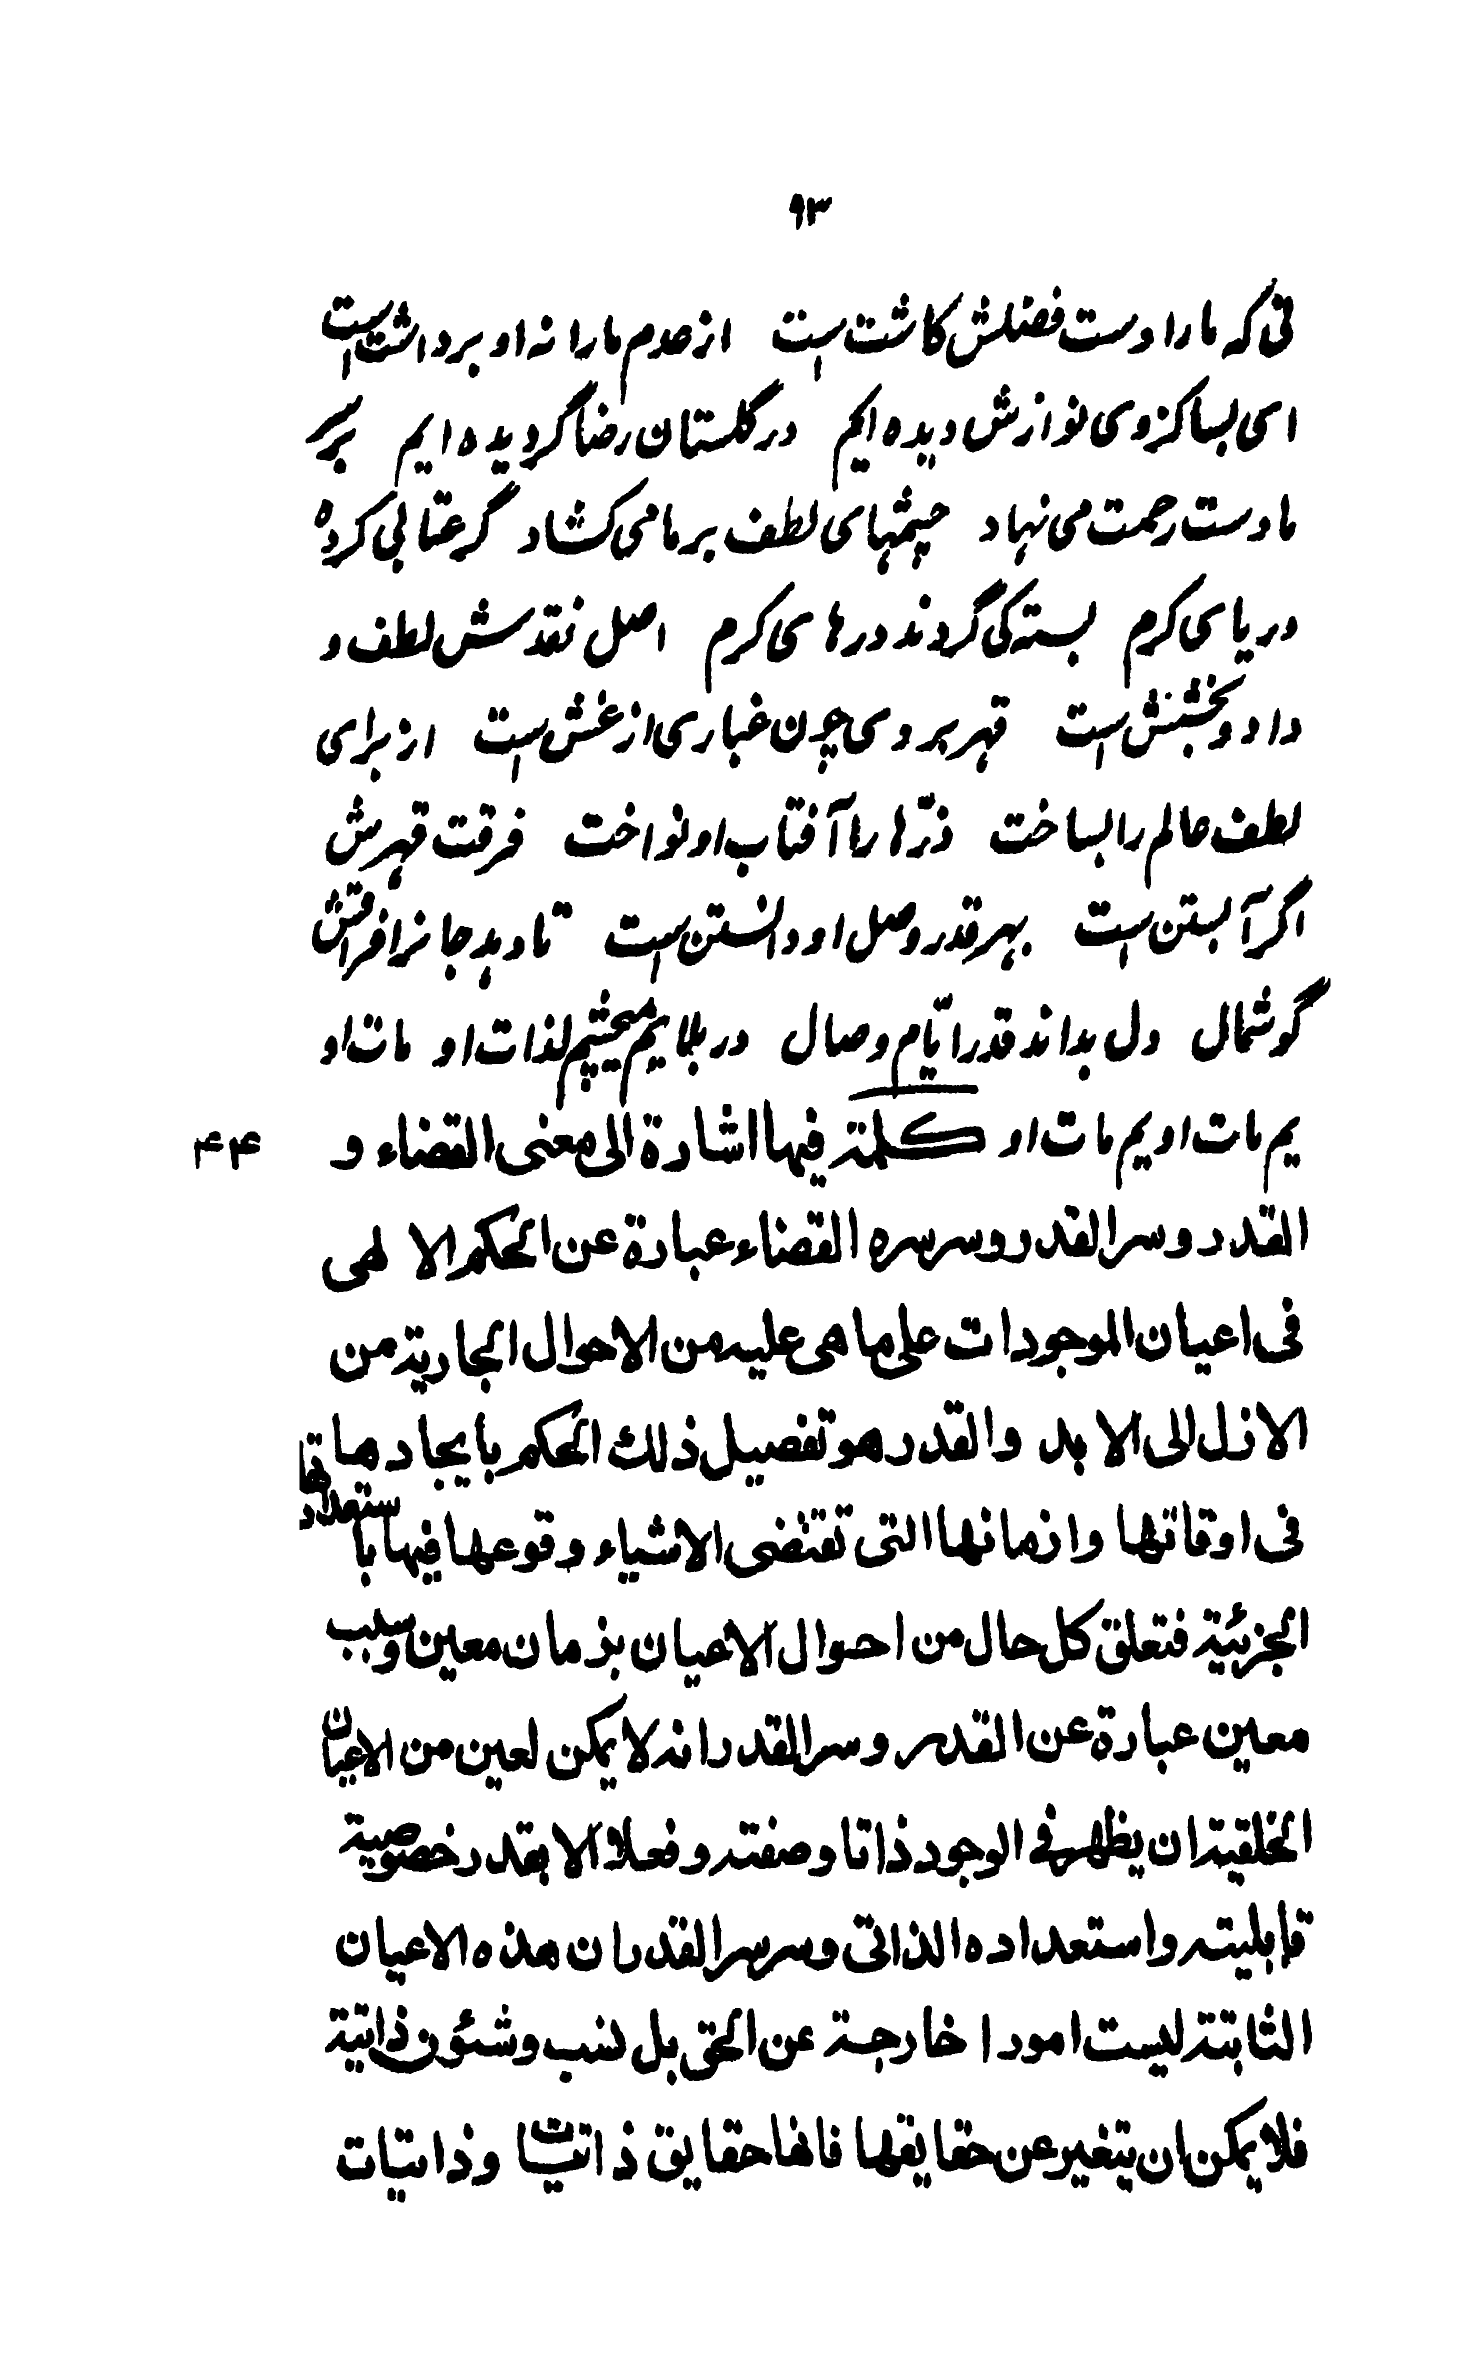 ۹۳
نی که ما را دست فضلش کاشت است از عدم ما را نه او برداشت است
ای بسا کز وی نوازش دیده ایم در گلستان رضا گردیده ایم بر سر
ما دست رحمت می نهاد چشمهای لطف بر ما می کشاد گر عتابی کرده
دریای کرم بسته کی گردند درهای کرم اصل نقدش لطف و
داد و بخشش است قهر بر وی چون غباری از غش است از برای
لطف عالم را بساخت ذرّها را آفتاب او نواخت فرقت قهرش
اگر آبستن است بهر قدر وصل او دانستن است تا دهد جانرا فراقش
گوشمال دل بداند قدر ایّام وصال در بلا یم میچشم لذات او مات او
یم مات او یم مات او كلمة فيها اشارة الى معنى القضاء و ۴۴
القدر و سر القدر و سر سره القضاء عبارة عن الحكم الالهى
فى اعيان الموجودات على ما هى عليه من الاحوال الجارية من
الازل الى الابد والقدر هو تفصيل ذلك الحكم بايجادها
فى اوقاتها وازمانها التى تقتضى الاشياء وقوعها فيها باستعداداتها
الجزئية فتعلق كل حال من احوال الاعيان بزمان معين وسبب
معين عبارة عن القدر وسر القدر انه لا يمكن لعين من الاعيان
الخلقية ان يظهر فى الوجود ذاتا وصفة وفعلا الا بقدر خصوصية
قابليته واستعداده الذاتى وسر سر القدر ان هذه الاعيان
الثابتة ليست امورا خارجة عن الحق بل نسب وشئون ذاتية
فلا يمكن ان يتغير عن حقايقها فانها حقايق ذاتيات وذاتيات